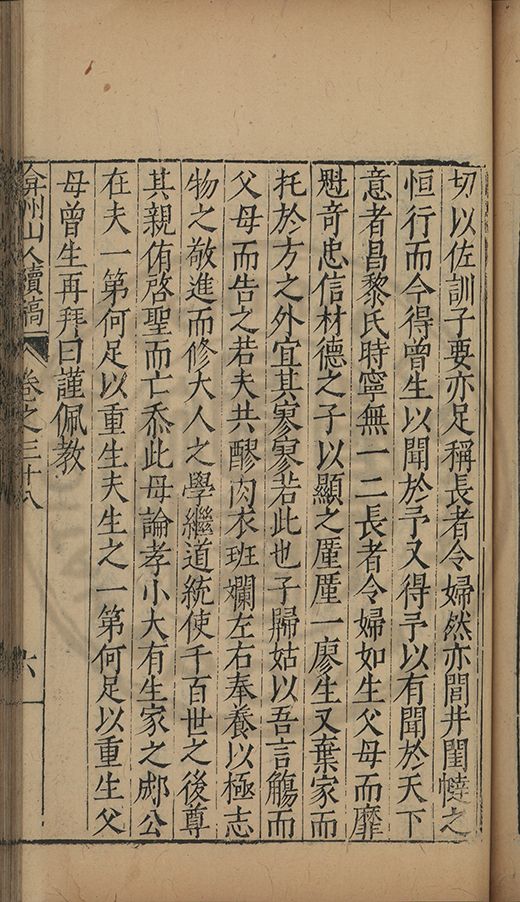 切以佐訓子要亦足稱長者令婦然亦閭井閨闥之
恒行而今得曾生以聞於予又得予以有聞於天下
意者昌黎氏時寧無一二長者令婦如生父母而靡
魁奇忠信材德之子以顯之厪厪一廖生又棄家而
托於方之外宜其寥寥若此也子歸姑以吾言觴而
父母而告之若夫共醪肉衣班斕左右奉養以極志
物之敬進而修大人之學繼道統使千百世之後尊
其親侑啓聖而亡忝此母論孝小大有生家之郕公
在夫一第何足以重生夫生之一第何足以重生父
母曾生再拜曰謹佩教
弇州山人續稿 卷之三十八 六